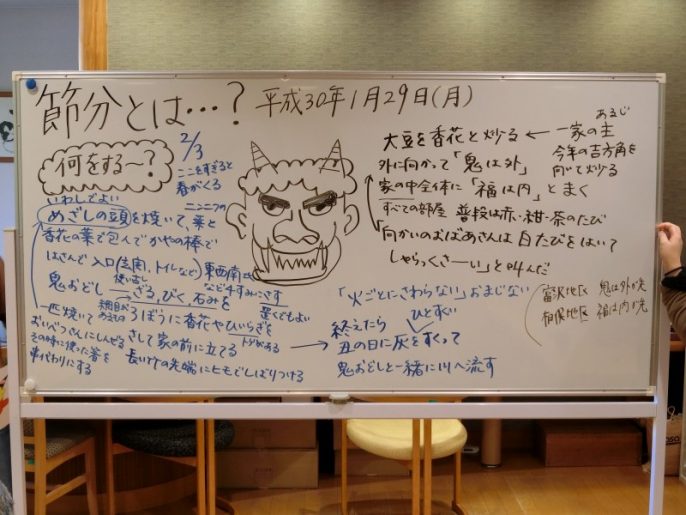 節分とは…？ 平成30年1月29日(月)
何をする〜？
2/3
ここをすぎると
春がくる
いわしでよい
めざしの頭を焼いて、葉と
ニンニクの
香花の葉で包んでかやの棒で
はさんで 入口(玄関、トイレなど)
東西南北
など4すみにさす
鬼おどし ー ざる、びく、石みを
使い古し
置くでもよい
一匹焼いて
細目が
ろぼうに香花やひいらぎを
トゲがある
おいべつさんにしんぜる
さして家の前に立てる
その時に使った箸を
長い竹の先端にヒモでしばりつける
串代わりにする
大豆を香花と炒る ← 一家の主
あるじ
今年の吉方角を
向いて炒る
外に向かって「鬼は外」
家の中全体に「福は内」とまく
すべての部屋 普段は赤・紺・茶のたび
「向かいのおばあさんは 白たびをはいて
しゃらっくさーい」と叫んだ
「火ごとにさわらない」おまじない
ひとすくい
終えたら
丑の日に灰をすくって
鬼おどしと一緒に川へ流す
富沢地区 鬼は外が先
相俣地区 福は内が先